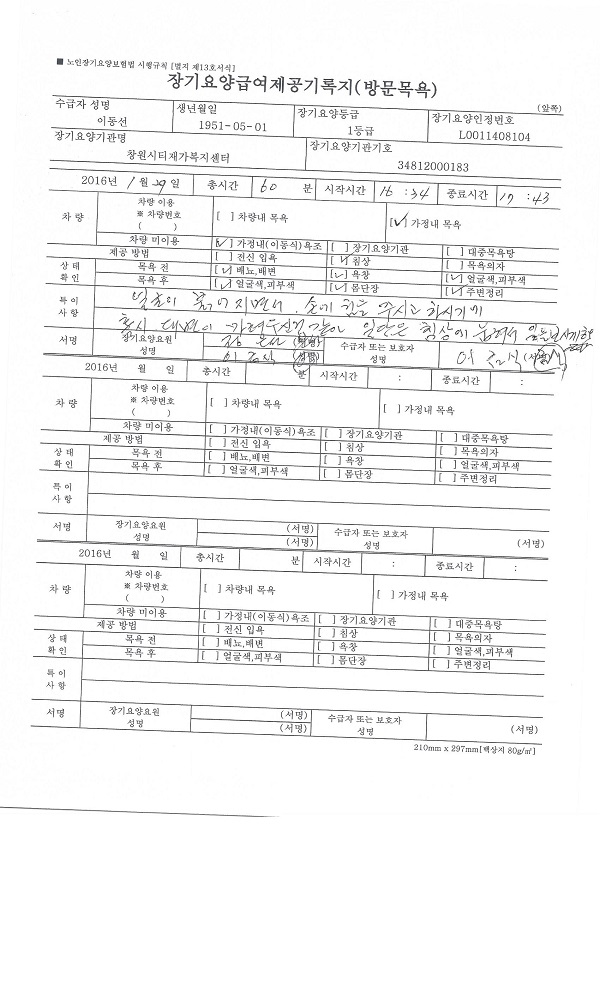 ■ 노인장기요양보험법 시행규칙 [별지 제13호서식]
장기요양급여제공기록지(방문목욕)
(앞쪽)
수급자 성명 생년월일 장기요양등급 장기요양인정번호
이동선 1951-05-01 1등급 L0011408104
장기요양기관명 장기요양기관기호
창원시티재가복지센터 34812000183
2016년 1월 29일 총시간 60 분 시작시간 16 : 34 종료시간 17 : 43
차 량 차량 이용 ※ 차량번호 ( ) [ ] 차량내 목욕 [✓] 가정내 목욕
차량 미이용 [✓] 가정내(이동식)욕조 [ ] 장기요양기관 [ ] 대중목욕탕
제공 방법 [ ] 전신 입욕 [✓] 침상 [ ] 목욕의자
상 태 확 인 목욕 전 [✓] 배뇨,배변 [✓] 욕창 [✓] 얼굴색,피부색
목욕 후 [✓] 얼굴색,피부색 [✓] 몸단장 [✓] 주변정리
특 이 사 항
손에 힘을 주시고 하시기에
혹시 대변이
서명 장기요양요원 성명 (서명) 수급자 또는 보호자 성명 (서명)
2016년 월 일 총시간 분 시작시간 : 종료시간 :
차 량 차량 이용 ※ 차량번호 ( ) [ ] 차량내 목욕 [ ] 가정내 목욕
차량 미이용 [ ] 가정내(이동식)욕조 [ ] 장기요양기관 [ ] 대중목욕탕
제공 방법 [ ] 전신 입욕 [ ] 침상 [ ] 목욕의자
상 태 확 인 목욕 전 [ ] 배뇨,배변 [ ] 욕창 [ ] 얼굴색,피부색
목욕 후 [ ] 얼굴색,피부색 [ ] 몸단장 [ ] 주변정리
특 이 사 항
서명 장기요양요원 성명 (서명) (서명) 수급자 또는 보호자 성명 (서명)
2016년 월 일 총시간 분 시작시간 : 종료시간 :
차 량 차량 이용 ※ 차량번호 ( ) [ ] 차량내 목욕 [ ] 가정내 목욕
차량 미이용 [ ] 가정내(이동식)욕조 [ ] 장기요양기관 [ ] 대중목욕탕
제공 방법 [ ] 전신 입욕 [ ] 침상 [ ] 목욕의자
상 태 확 인 목욕 전 [ ] 배뇨,배변 [ ] 욕창 [ ] 얼굴색,피부색
목욕 후 [ ] 얼굴색,피부색 [ ] 몸단장 [ ] 주변정리
특 이 사 항
서명 장기요양요원 성명 (서명) (서명) 수급자 또는 보호자 성명 (서명)
210mm x 297mm[백상지 80g/㎡]